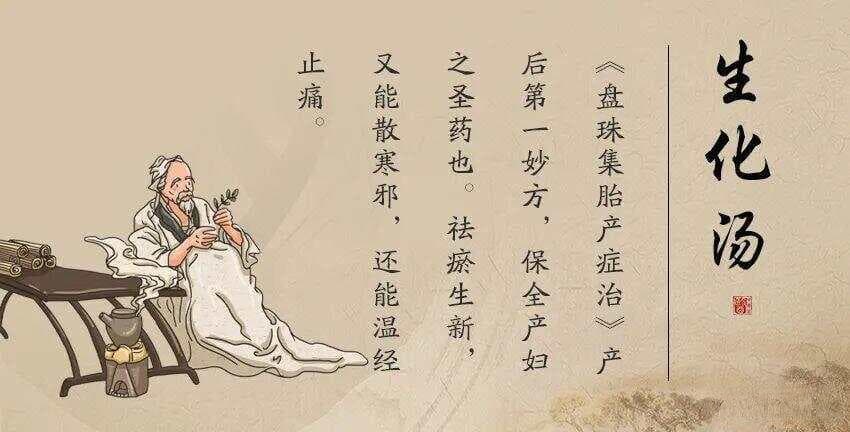 生化汤
《盘珠集胎产症治》产
后第一妙方，保全产妇
之圣药也。祛瘀生新，
又能散寒邪，还能温经
止痛。